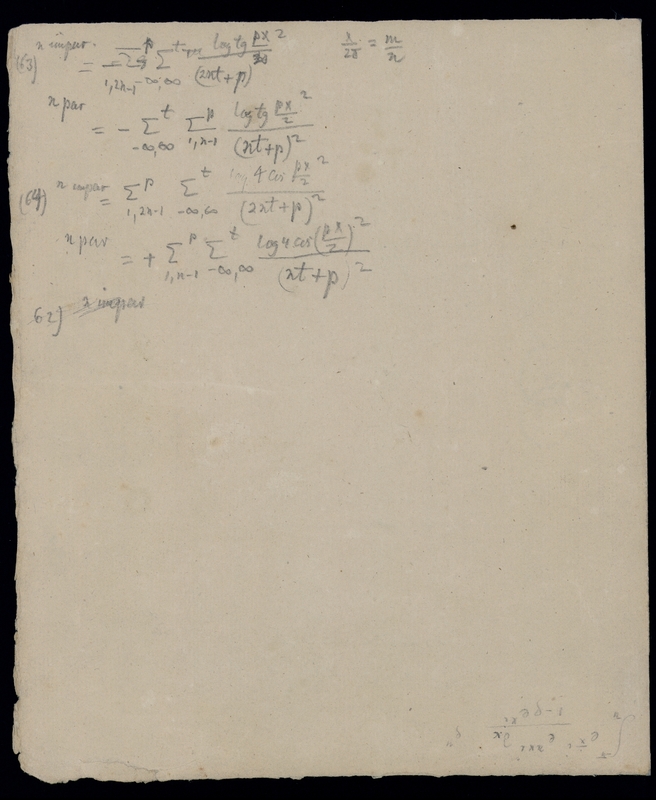 (63) n impar. = − Σ^p_{1,2n−1} Σ^t_{−∞,∞} log tg (px/2)^2 / (2nt+p)   x/2π = m/n
n par = − Σ^t_{−∞,∞} Σ^p_{1,n−1} log tg (px/2)^2 / (nt+p)^2
(64) n impar = Σ^p_{1,2n−1} Σ^t_{−∞,∞} log 4 cos (px/2)^2 / (2nt+p)^2
n par = + Σ^p_{1,n−1} Σ^t_{−∞,∞} log 4 cos (px/2)^2 / (nt+p)^2
62) n impar